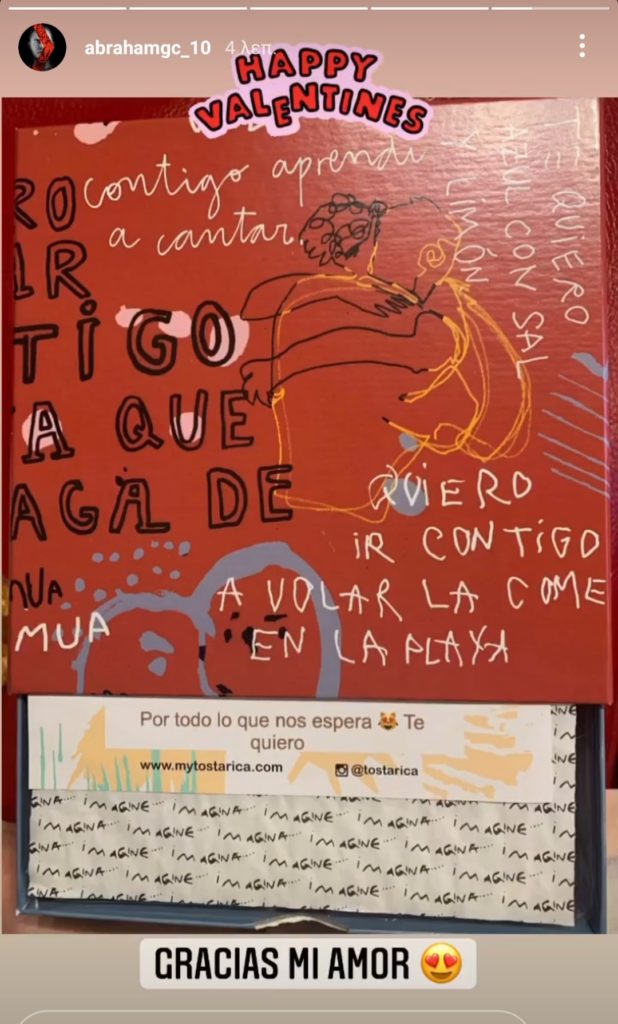 abrahamgc_10 4 λεπ.
HAPPY
VALENTINES
contigo aprendi
a cantar.
TE QUIERO
AZUL CON SAL
Y LIMÓN
RO
IR
TIGO
A QUE
AGA DE
QUIERO
IR CONTIGO
A VOLAR LA COME
EN LA PLAYA
MUA
MUA
Por todo lo que nos espera 😻 Te
quiero
www.mytostarica.com @tostarica
IMAGINE
IMAGINA... IMAGINE... IMAGINA... IMAGINE... IMAGINA... IMAGINE... IN
IMAGINA... IMAGINE... IMAGINA... IMAGINE... IMAGINA... IMAGINE...
GINA... IMAGINE... IMAGINA... IMAGINE... IMAGINA... IMAGINE...
IMAGINA... IMAGINE... IMAGINA... IMAGINE... IMAGINA... IMAGINE
GRACIAS MI AMOR 😍